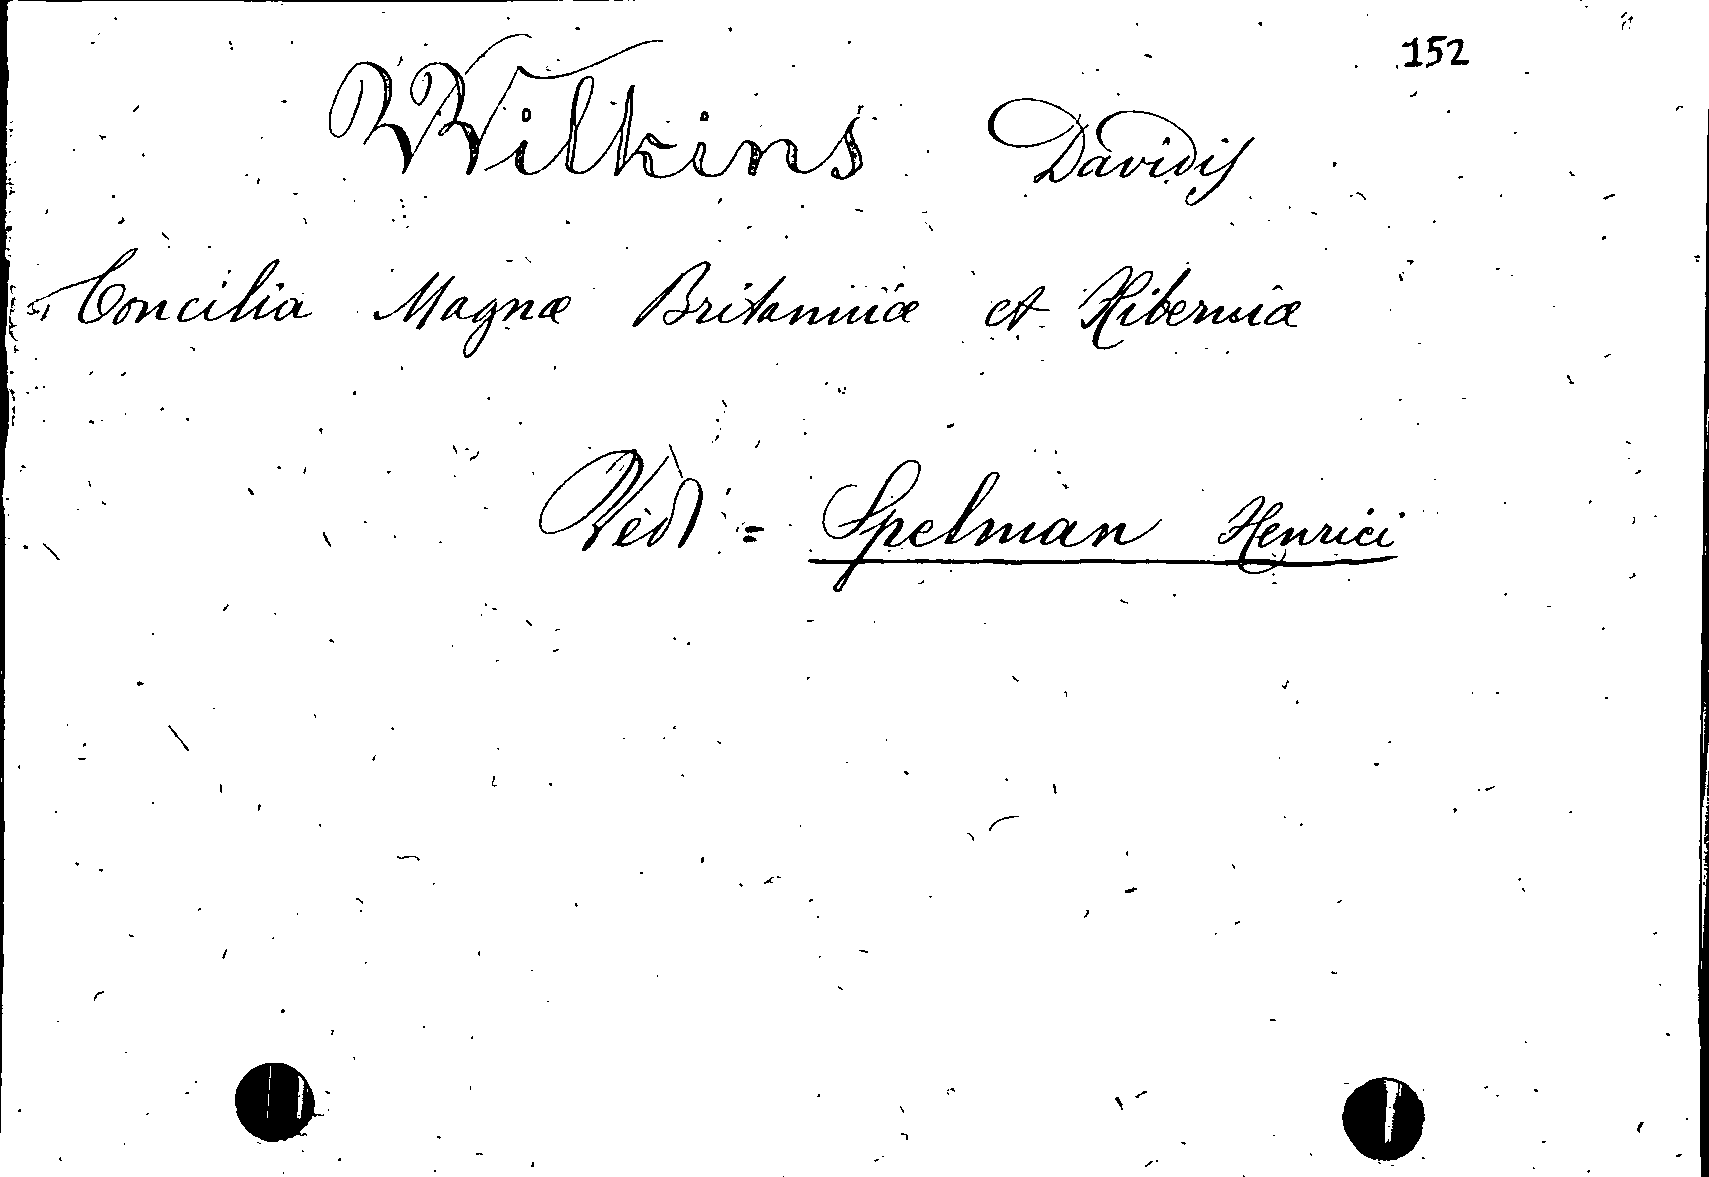 152
Wilkins Davidis
Concilia Magnæ Britanniæ et Hiberniæ
Vedi = Spelman Henrici